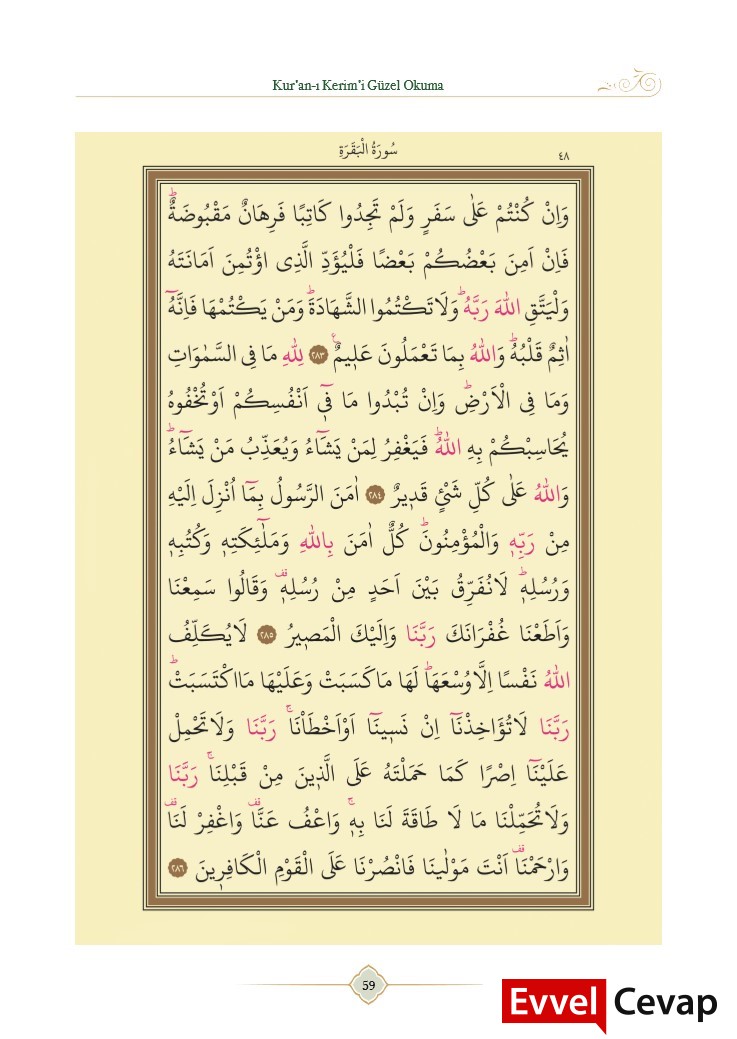 Kur’an-ı Kerim’i Güzel Okuma
سُورَةُ الْبَقَرَةِ
٤٨
وَاِنْ كُنْتُمْ عَلٰى سَفَرٍ وَلَمْ تَجِدُوا كَاتِبًا فَرِهَانٌ مَقْبُوضَةٌۜ
فَاِنْ اَمِنَ بَعْضُكُمْ بَعْضًا فَلْيُؤَدِّ الَّذِى اؤْتُمِنَ اَمَانَتَهُ
وَلْيَتَّقِ اللّٰهَ رَبَّهُۜ وَلَا تَكْتُمُوا الشَّهَادَةَۜ وَمَنْ يَكْتُمْهَا فَاِنَّهُٓ
اٰثِمٌ قَلْبُهُۜ وَاللّٰهُ بِمَا تَعْمَلُونَ عَل۪يمٌ۟ ﴿٢٨٣﴾ لِلّٰهِ مَا فِى السَّمٰوَاتِ
وَمَا فِى الْاَرْضِۜ وَاِنْ تُبْدُوا مَا ف۪ٓى اَنْفُسِكُمْ اَوْ تُخْفُوهُ
يُحَاسِبْكُمْ بِهِ اللّٰهُۜ فَيَغْفِرُ لِمَنْ يَشَٓاءُ وَيُعَذِّبُ مَنْ يَشَٓاءُۜ
وَاللّٰهُ عَلٰى كُلِّ شَىْءٍ قَد۪يرٌ ﴿٢٨٤﴾ اٰمَنَ الرَّسُولُ بِمَٓا اُنْزِلَ اِلَيْهِ
مِنْ رَبِّه۪ وَالْمُؤْمِنُونَۜ كُلٌّ اٰمَنَ بِاللّٰهِ وَمَلٰٓئِكَتِه۪ وَكُتُبِه۪
وَرُسُلِه۪ۜ لَا نُفَرِّقُ بَيْنَ اَحَدٍ مِنْ رُسُلِه۪۠ وَقَالُوا سَمِعْنَا
وَاَطَعْنَا غُفْرَانَكَ رَبَّنَا وَاِلَيْكَ الْمَص۪يرُ ﴿٢٨٥﴾ لَا يُكَلِّفُ
اللّٰهُ نَفْسًا اِلَّا وُسْعَهَاۜ لَهَا مَا كَسَبَتْ وَعَلَيْهَا مَا اكْتَسَبَتْۜ
رَبَّنَا لَا تُؤَاخِذْنَٓا اِنْ نَس۪ينَٓا اَوْ اَخْطَاْنَاۚ رَبَّنَا وَلَا تَحْمِلْ
عَلَيْنَٓا اِصْرًا كَمَا حَمَلْتَهُ عَلَى الَّذ۪ينَ مِنْ قَبْلِنَاۚ رَبَّنَا
وَلَا تُحَمِّلْنَا مَا لَا طَاقَةَ لَنَا بِه۪ۚ وَاعْفُ عَنَّا۠ وَاغْفِرْ لَنَا۠
وَارْحَمْنَا۠ اَنْتَ مَوْلٰينَا فَانْصُرْنَا عَلَى الْقَوْمِ الْكَافِر۪ينَ ﴿٢٨٦﴾
59
Evvel Cevap